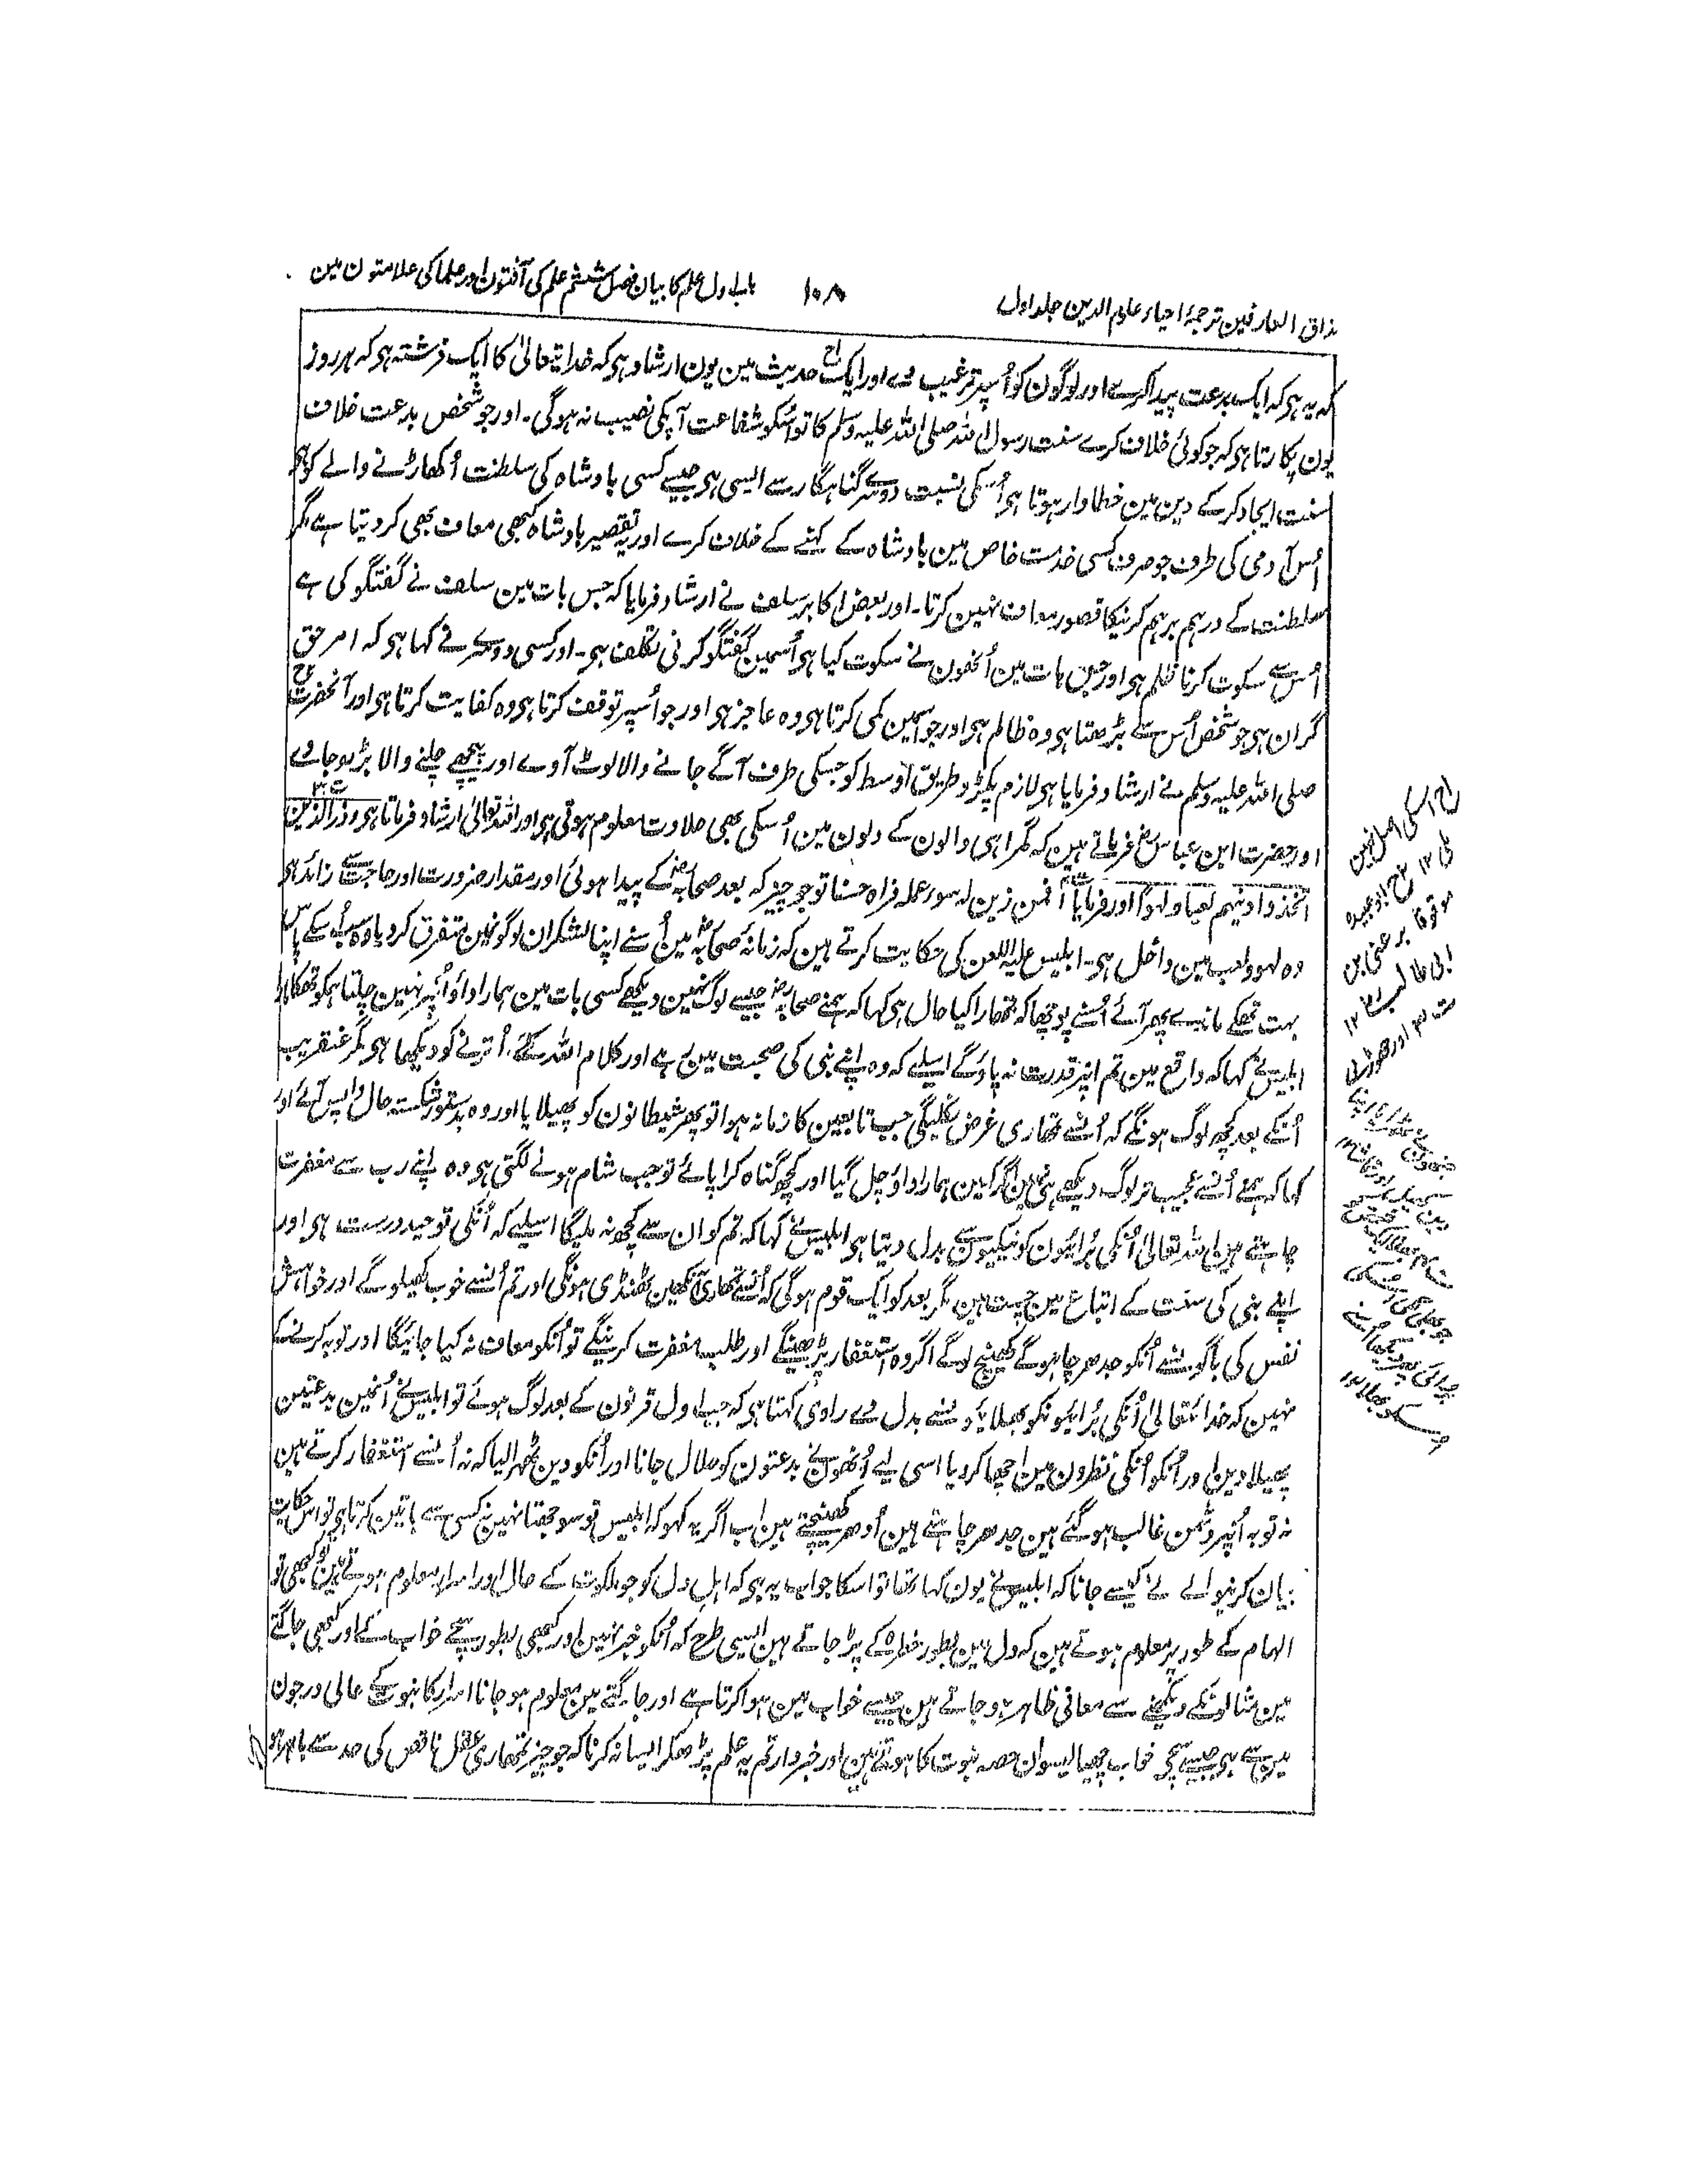 مذاق العارفین ترجمۂ احیاء علوم الدین جلد اول
۱۰۸
باب اول علم کا بیان فصل ششم علم کی آفتون اور علما کی علامتون مین
کہ یہ ہی کہ ایک بدعت پیدا کرے اور لوگون کو اُسپر ترغیب دے اور ایک حدیث مین یون ارشاد ہی کہ خدا تعالیٰ کا ایک فرشتہ ہی کہ ہر روز
یون پکارتا ہی کہ جو کوئی خلاف کرے سنت رسول اللہ صلی اللہ علیہ وسلم کا تو اُسکو شفاعت آپکی نصیب نہ ہوگی۔ اور جو شخص بدعت خلاف
سنت ایجاد کرکے دین مین خطاوار ہوتا ہی اُسکی نسبت دوسرے گناہگار سے ایسی ہی جیسے کسی بادشاہ کی سلطنت اُکھاڑنے والے کو ہی
اُس آدمی کی طرف جو صرف کسی خدمت خاص مین بادشاہ کے کہنے کے خلاف کرے اور یہ تقصیر بادشاہ کبھی معاف بھی کردیتا ہے مگر
سلطنت کے درہم برہم کرنیکا قصور معاف نہین کرتا۔ اور بعض اکابر سلف نے ارشاد فرمایا کہ جس بات مین سلف نے گفتگو کی ہے
اُس سے سکوت کرنا ظلم ہی اور جس بات مین اُنھون نے سکوت کیا ہی اُسمین گفتگو کرنی تکلف ہی۔ اور کسی دوسرے نے کہا ہی کہ امر حق
گران ہی جو شخص اُس سے بڑھتا ہی وہ ظالم ہی اور جو اُسمین کمی کرتا ہی وہ عاجز ہی اور جو اُسپر توقف کرتا ہی وہ کفایت کرتا ہی اور آنحضرت
صلی اللہ علیہ وسلم نے ارشاد فرمایا ہی لازم پکڑو طریق اوسط کو جسکی طرف آگے جانے والا لوٹ آوے اور پیچھے چلنے والا بڑھ جاوے
اور حضرت ابن عباس رض فرماتے ہین کہ گمراہی والون کے دلون مین اُسکی بھی حلاوت معلوم ہوتی ہی اور اللہ تعالیٰ ارشاد فرماتا ہی وذر الذین
اتخذوا دینہم لعبا ولہوا اور فرمایا افمن زین لہ سوء عملہ فراہ حسنا تو جو چیز کہ بعد صحابہ رض کے پیدا ہوئی اور مقدار ضرورت اور حاجت سے زائد ہی
وہ لہو ولعب مین داخل ہی۔ ابلیس علیہ اللعن کی حکایت کرتے ہین کہ زمانۂ صحابہ رض مین اُسنے اپنا لشکر ان لوگونمین متفرق کردیا وہ سب اُسکے پاس
بہت تھکے ماندے پھر آئے اُسنے پوچھا کہ تمھارا کیا حال ہی کہا کہ ہمنے صحابہ رض جیسے لوگ نہین دیکھے کسی بات مین ہمارا داؤ اُنپر نہین چلتا ہمکو تھکا مارا
ابلیس نے کہا کہ واقع مین تم انپر قدرت نہ پاؤگے اسلیے کہ وہ اپنے نبی کی صحبت مین رہے اور کلام اللہ کے اُترنے کو دیکھا ہی مگر عنقریب
اُنکے بعد کچھ لوگ ہونگے کہ اُنسے تمھاری غرض نکلیگی جب تابعین کا زمانہ ہوا تو پھر شیطانون کو پھیلایا اور وہ بدستور شکستہ حال واپس آئے اور
کہا کہ ہمنے اُنسے عجیب تر لوگ دیکھے ہی نہین اگر کہین ہمارا داؤ چل گیا اور کچھ گناہ کرا پائے تو جب شام ہونے لگتی ہی وہ اپنے رب سے مغفرت
چاہتے ہین اللہ تعالیٰ اُنکی بُرائیون کو نیکیون سے بدل دیتا ہی ابلیس نے کہا کہ تم کو ان سے کچھ نہ ملیگا اسلیے کہ اُنکی توحید درست ہی اور
اپنے نبی کی سنت کے اتباع مین چست ہین مگر بعد کو ایک قوم ہوگی کہ اُنسے تمھاری آنکھین ٹھنڈی ہونگی اور تم اُنسے خوب کھیلوگے اور خواہش
نفس کی باگون سے اُنکو جدھر چاہوگے کھینچ لوگے اگر وہ استغفار پڑھینگے اور طلب مغفرت کرینگے تو اُنکو معاف نہ کیا جائیگا اور توبہ کرنے کے
نہین کہ خدا تعالیٰ اُنکی بُرائیونکو بھلائیونسے بدل دے راوی کہتا ہی کہ جب اول قرنون کے بعد لوگ ہوئے تو ابلیس نے اُنمین بدعتین
پھیلا دین اور اُنکو اُنکی نظرون مین اچھا کردیا اسی لیے اُنھون نے بدعتون کو حلال جانا اور اُنکو دین ٹھہرا لیا کہ نہ اُنسے استغفار کرتے ہین
نہ توبہ اُنپر دشمن غالب ہوگئے ہین جدھر چاہتے ہین اُدھر کھینچتے ہین اب اگر یہ کہو کہ ابلیس تو سوجھتا نہین نہ کسی سے باتین کرتا ہی تو اس حکایت
بیان کرنیوالے نے کیسے جانا کہ ابلیس نے یون کہا تھا تو اسکا جواب یہ ہی کہ اہل دل کو جو ملکوت کے حال اور اسرار معلوم ہوتے ہین تو کبھی تو
الہام کے طور پر معلوم ہوتے ہین کہ دل مین بطور خطرہ کے پڑ جاتے ہین ایسی طرح کہ اُنکو خبر نہین اور کبھی بطور سچے خواب کے اور کبھی جاگتے
مین مثالونکے دیکھنے سے معانی ظاہر ہوجاتے ہین جیسے خواب مین ہوا کرتا ہے اور جاگتے مین معلوم ہوجانا اسرار کا نبوت کے عالی درجون
مین سے ہی جیسے سچے خواب چھیالیسوان حصہ نبوت کا ہوتے ہین اور خبردار تم یہ علم پڑھکر ایسا نہ کرنا کہ جو چیز تمھاری عقل ناقص کی حد سے باہر ہو
اسکی اصل نہین
ملی ۱۲ ابو عبیدہ
موقوفا بر علی بن
ابی طالب رض ۱۲
ت ۳ اور چھوڑ دے